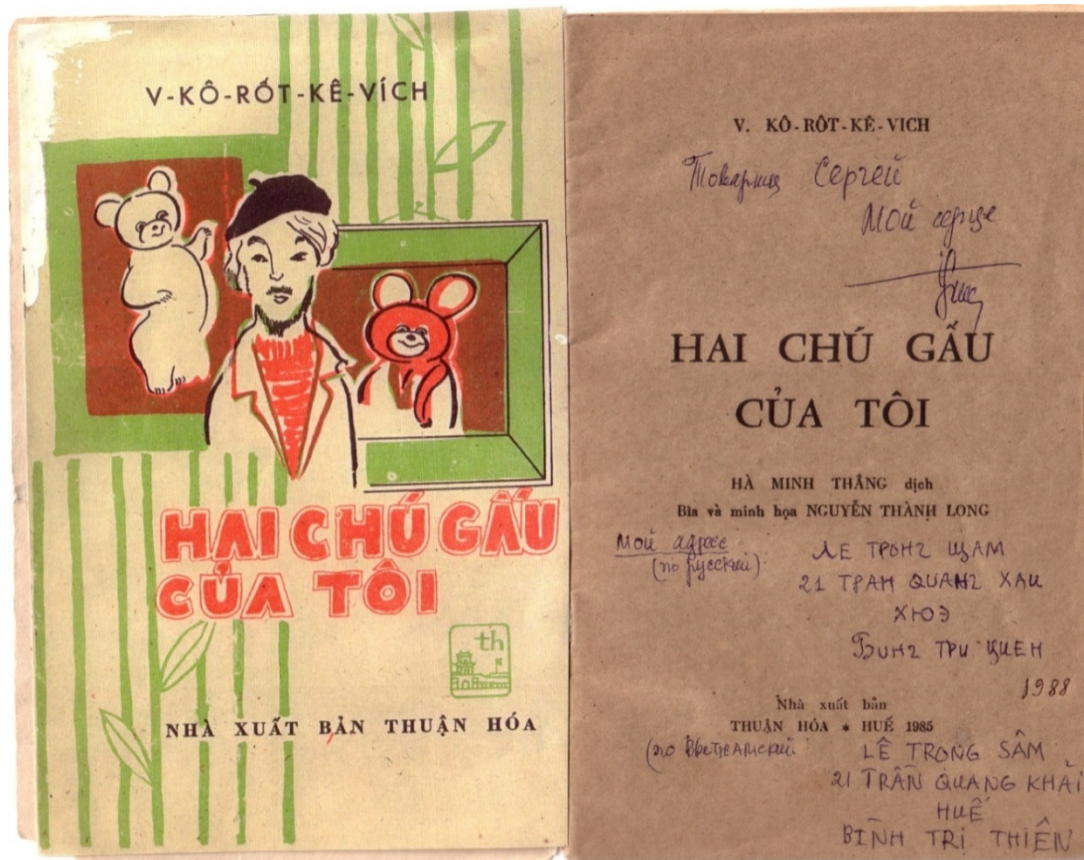 V-KÔ-RỐT-KÊ-VÍCH
HAI CHÚ GẤU
CỦA TÔI
th
NHÀ XUẤT BẢN THUẬN HÓA
V. KÔ-RÔT-KÊ-VICH
Сергей
Мой
HAI CHÚ GẤU
CỦA TÔI
HÀ MINH THẮNG dịch
Bìa và minh họa NGUYỄN THÀNH LONG
Мой адрес
(по русский)
ЛЕ ТРОНГ ШАМ
21 ТРАН QUАНГ ХАИ
ХЮЭ
БИНГ ТРИ
1988
Nhà xuất bản
THUẬN HÓA * HUẾ 1985
(по
LÊ TRỌNG SÂM
21 TRẦN QUANG KHẢI
HUẾ
BÌNH TRỊ THIÊN